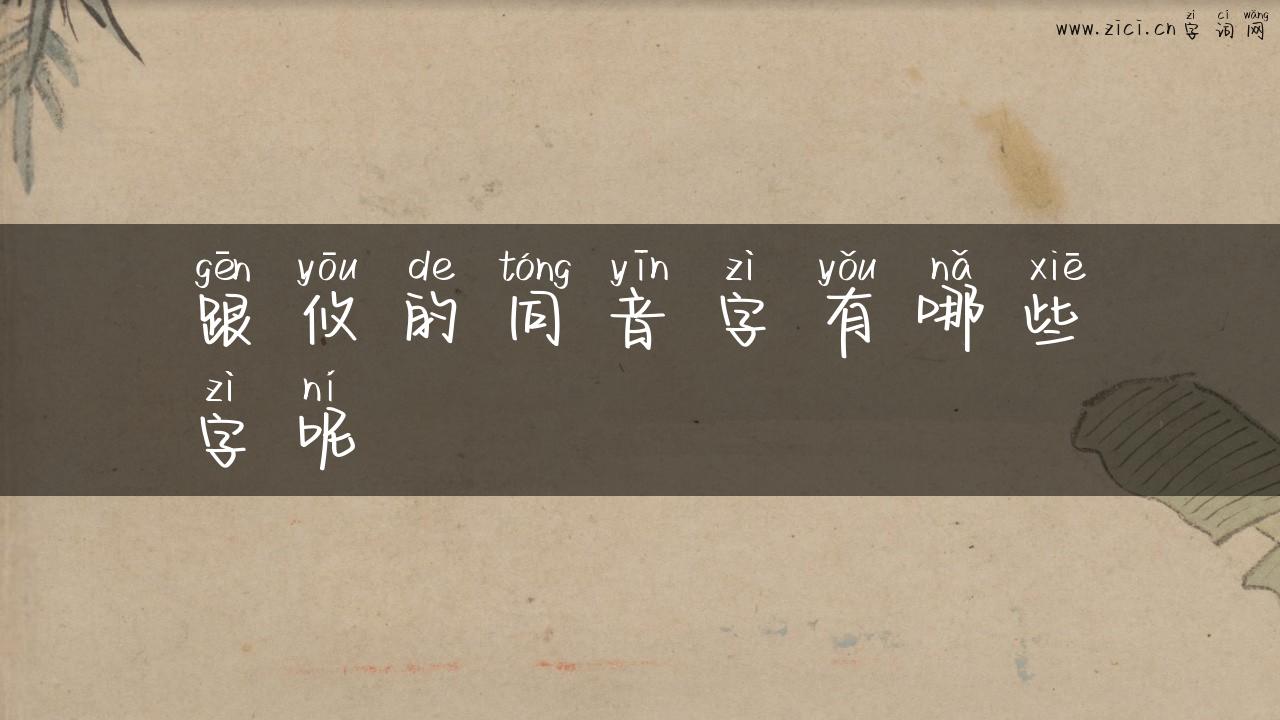 zì cí wǎng
www.zici.cn 字词网
gēn yōu de tóng yīn zì yǒu nǎ xiē
跟攸的同音字有哪些
zì ní
字呢